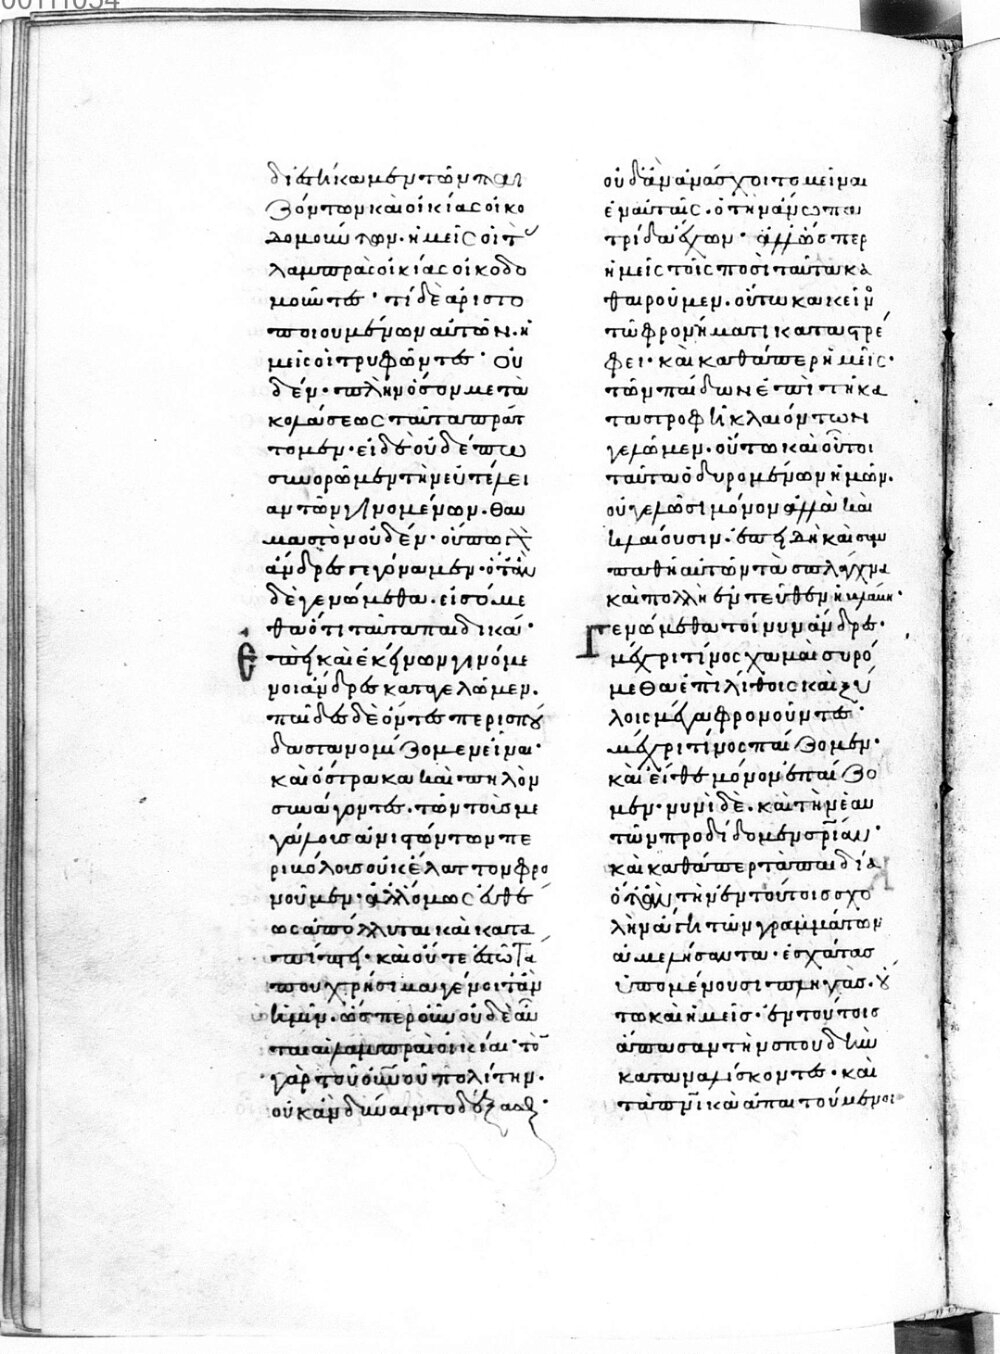 διεστήκαμεν τῶν παι
ζόντων καὶ οἰκίας οἰκο
δομούντων· ἡμεῖς οἱ τ
λαμπρὰς οἰκίας οἰκοδο
μοῦντες· τί δὲ ἀριστο
ποιουμένων αὐτῶν· ἡ
μεῖς οἱ τρυφῶντες· Οὐ
δέν· πλὴν ὅσον μετὰ
κολάσεως ταῦτα πράτ
τομεν· εἰ δὲ οὐδέπω
συνορῶμεν τὴν εὐτέλει
αν τῶν γινομένων· θαυ
μαστὸν οὐδέν· οὔπω γὰρ
ἄνδρες γεγόναμεν· ὅταν
δὲ γενώμεθα· εἰσόμε
θα ὅτι ταῦτα παιδικά·
ἐπεὶ καὶ ἐκείνων γινόμε
νοι ἄνδρες καταγελῶμεν·
παῖδες δὲ ὄντες περισπού
δαστα νομίζομεν εἶναι·
καὶ ὄστρακα καὶ πηλὸν
συνάγοντες· τῶν τοὺς με
γάλους ἀνιστώντων πε
ριβόλους οὐκ ἔλαττον φρο
νοῦμεν· ἀλλ' ὅμως εὐθέ
ως ἀπόλλυται καὶ κατα
πίπτει· καὶ οὔτε ἑστῶτά
που χρήσιμα γένοιτ' ἂν
ἡμῖν· ὥσπερ οὖν οὐδὲ αὗ
ται αἱ λαμπραὶ οἰκίαι· τὸν
γὰρ τοῦ οὐρανοῦ πολίτην·
οὐκ ἂν δύναιντο δέξασθαι·
οὐδ' ἂν ἀνάσχοιτο μεῖναι
ἐν αὐταῖς· ὁ τὴν ἄνω πα
τρίδα ἔχων· ἀλλ' ὥσπερ
ἡμεῖς τοῖς ποσὶ ταῦτα κα
θαιροῦμεν· οὕτω κἀκεῖνος
τῷ φρονήματι καταστρέ
φει· καὶ καθάπερ ἡμεῖς·
τῶν παίδων ἐπὶ τῇ κα
ταστροφῇ κλαιόντων
γελῶμεν· οὕτω καὶ οὗτοι
ταῦτα ὀδυρομένων ἡμῶν·
οὐ γελῶσι μόνον ἀλλὰ καὶ
κλαίουσιν· ἐπειδὴ καὶ συμ
παθῆ αὐτῶν τὰ σπλάγχνα
καὶ πολλὴ ἐντεῦθεν ἡ βλάβη·
Γενώμεθα τοίνυν ἄνδρες·
μέχρι τίνος χαμαὶ συρό
μεθα ἐπὶ λίθοις καὶ ξύ
λοις μέγα φρονοῦντες·
μέχρι τίνος παίζομεν·
καὶ εἴθε μόνον ἐπαίζο
μεν· νυνὶ δὲ· καὶ τὴν ἑαυ
τῶν προδίδομεν σρίαν·
καὶ καθάπερ τὰ παιδία
ὅταν τὴν ἐν τούτοις σχο
λὴν ἄγῃ τῶν γραμμάτων
ἀμελήσαντα· ἐσχάτας
ὑπομένουσι πληγάς· οὕ
τω καὶ ἡμεῖς· ἐν τούτοις
ἅπασαν τὴν σπουδὴν
καταναλίσκοντες· καὶ
τὰ πνικὰ ἀπαιτούμενοι